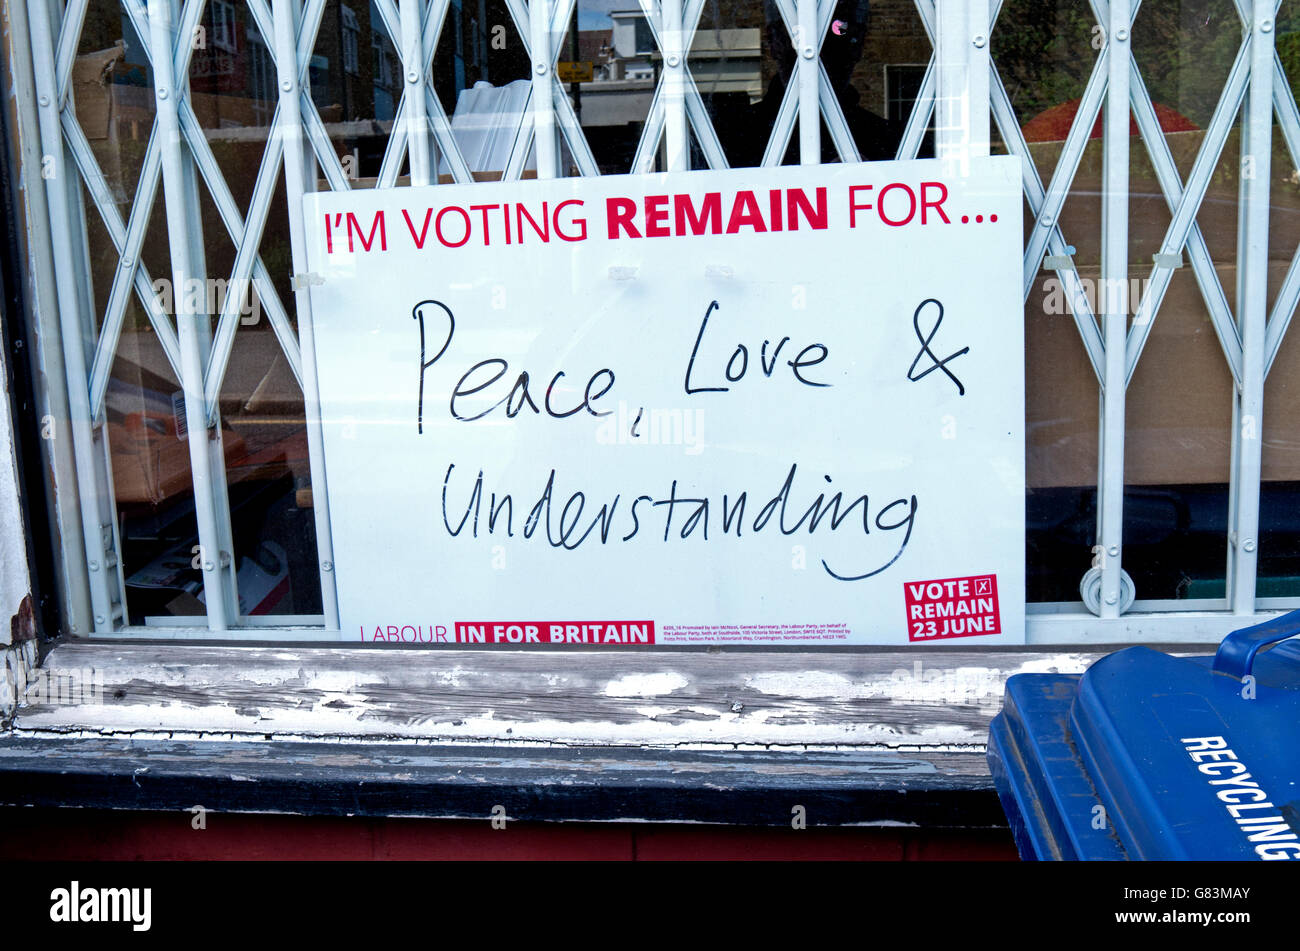 I'M VOTING REMAIN FOR...
Peace, Love &
Understanding
LABOUR IN FOR BRITAIN
VOTE
REMAIN
23 JUNE
RECYCLING
alamy
Image ID: G83MAY
www.alamy.com